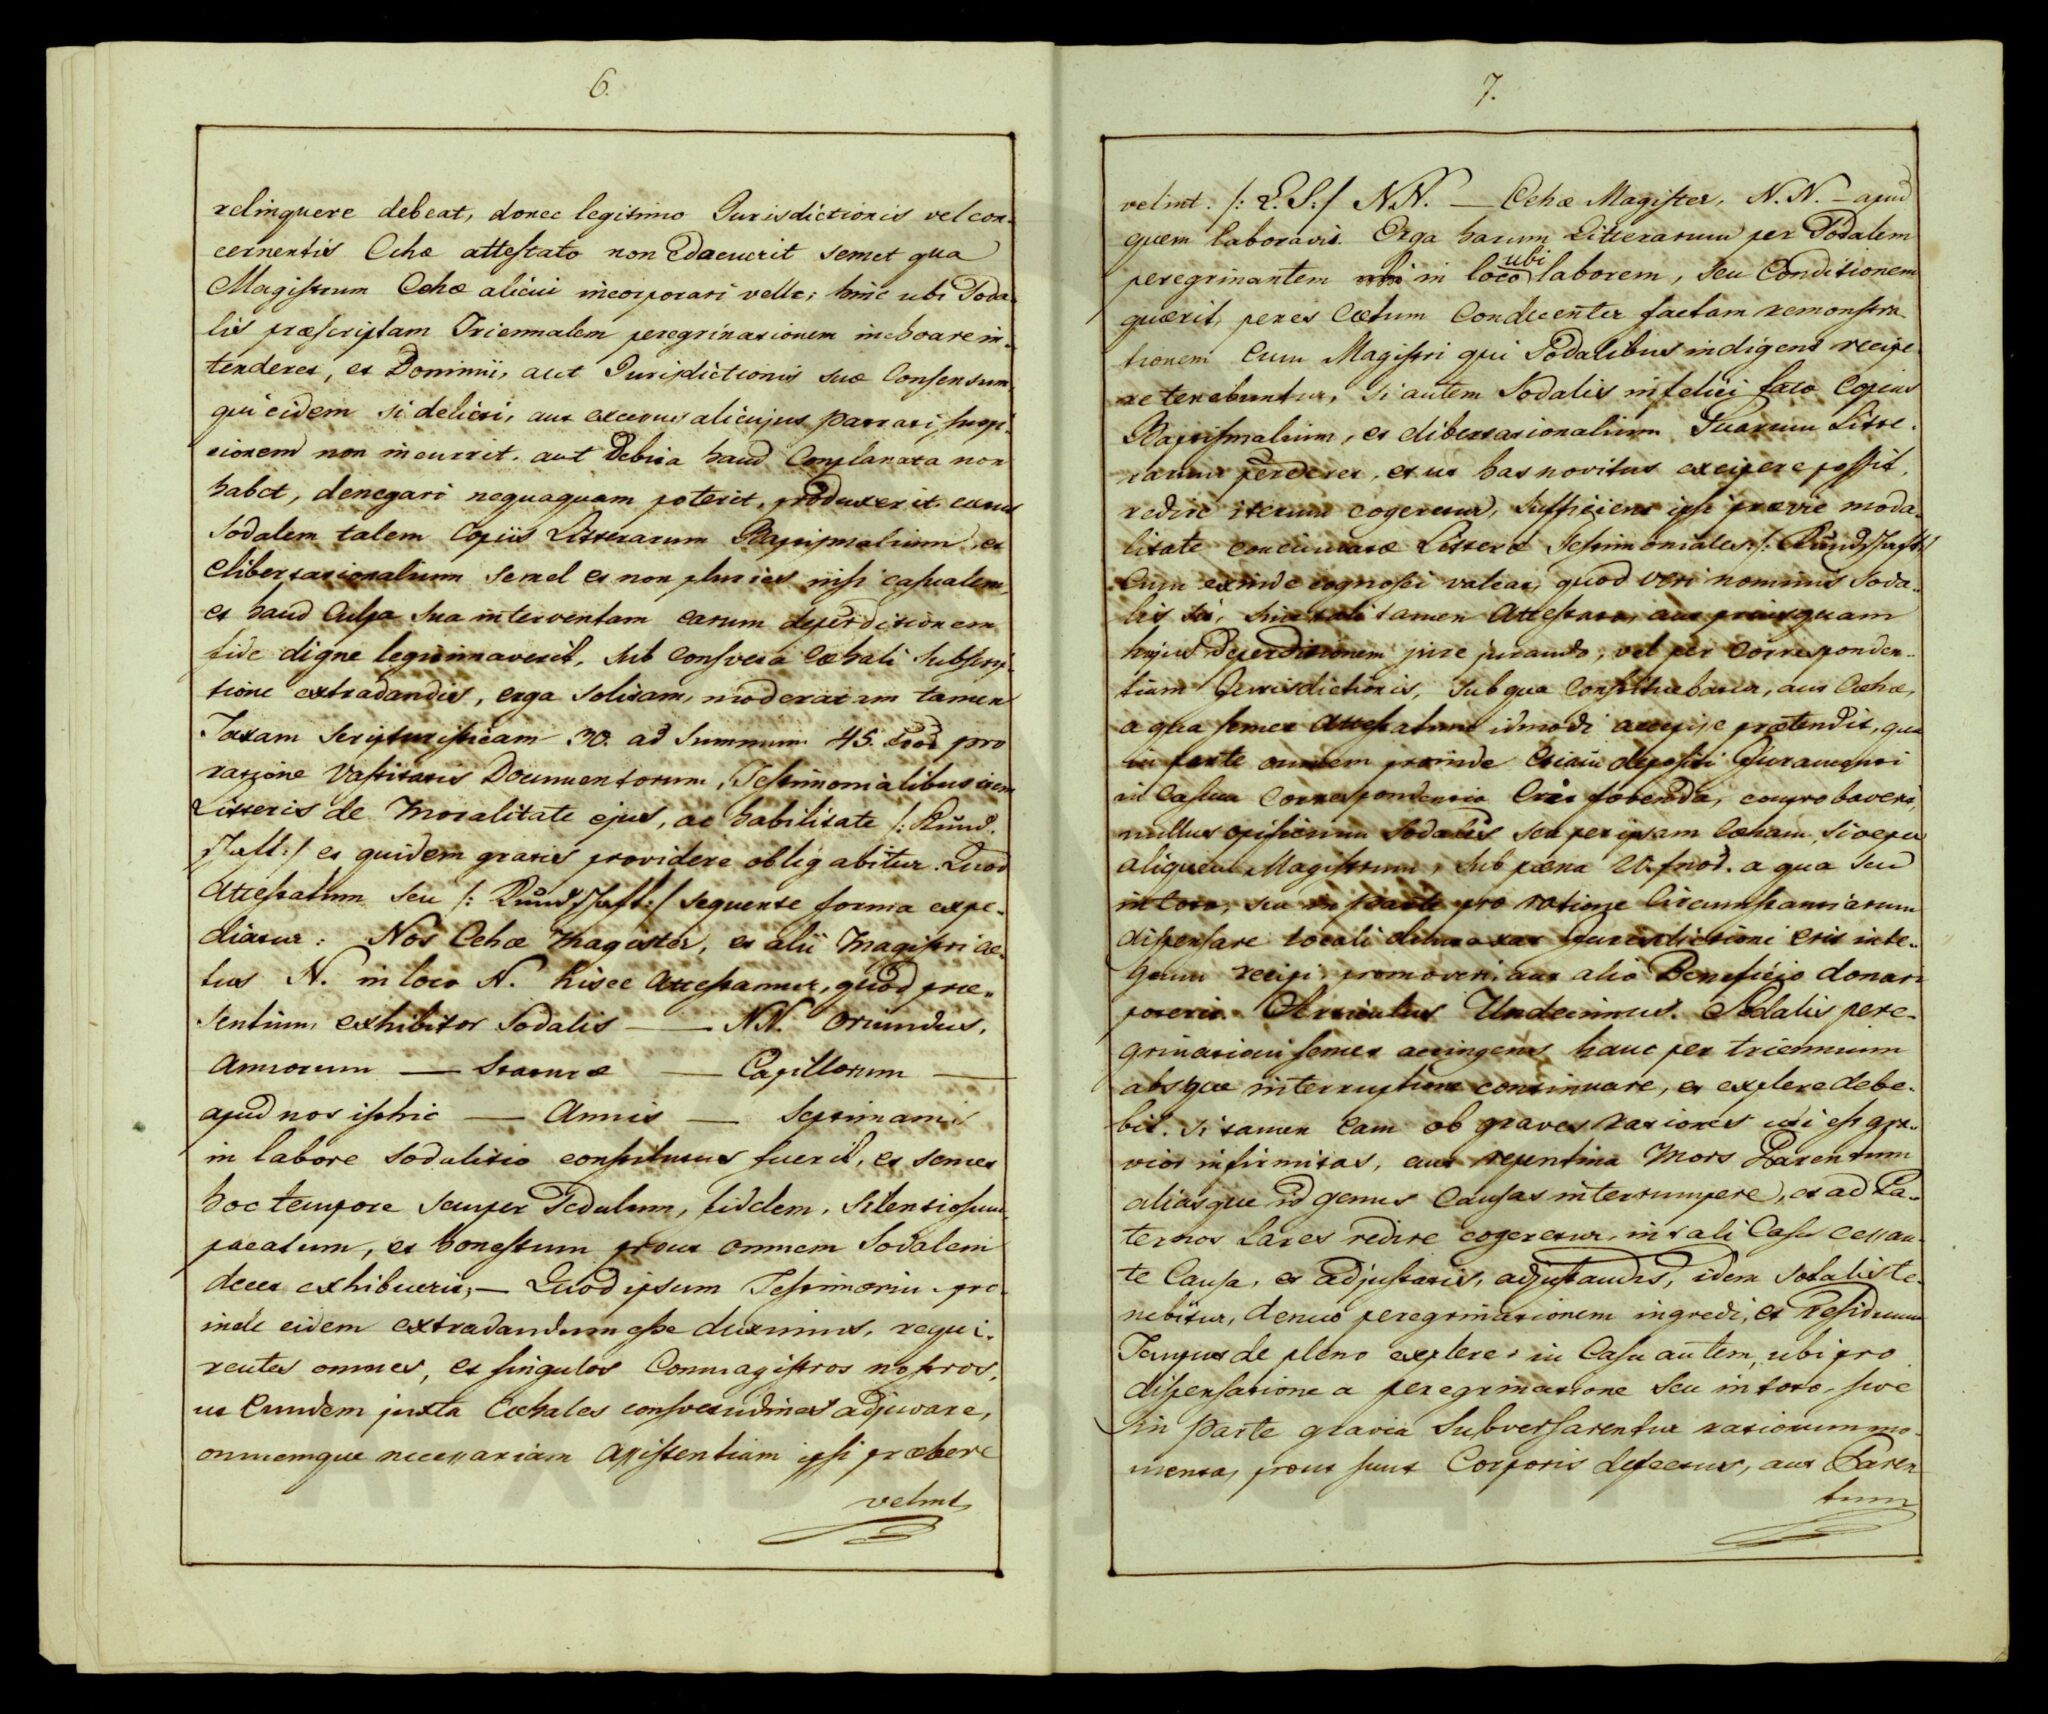 6.
relinquere debeat, donec legitimo Jurisdictionis vel con-
cernentis Cehæ attestato non edocuerit semet qua
Magistrum Cehæ alicui incorporari velle; hinc ubi Soda-
lis præscriptam Triennalem peregrinationem inchoare in-
tenderet, et Dominii, aut Jurisdictionis suæ Consensum,
qui eidem si delicti, aut excessus alicujus patrati suspi-
cionem non incurrit, aut Debita haud Complanata non
habet, denegari nequaquam poterit, produxerit, eatus
Sodalem talem Copiis Litterarum Baptismalium, et
elibertationalium semel et non pluries nisi casualem,
et haud Culpa sua interventam earum deperditionem
fide digne legitimaverit, sub Consveta Cœhali subscrip-
tione extradandis, erga solitam, moderatam tamen
Taxam Scripturisticam 30. ad summum 45. pro
ratione Vastitatis Documentorum, Testimonialibus item
Litteris de Moralitate ejus, ac habilitate /: Kund-
schaft :/ et quidem gratis providere obligabitur. Quod
Attestatum seu /: Kundschaft :/ sequente forma expe-
diatur: Nos Cehæ Magister, et alii Magistri Cœ-
tus N. in loco N. hisce Attestamur, quod præ-
sentium exhibitor Sodalis — NN. Oriundus,
Annorum — Staturæ — Capillorum —
apud nos isthic — Annis — Septimanis
in labore sodalitio constitutus fuerit, et semet
hoc tempore semper Sedulum, fidelem, silentiosum,
pacatum, et honestum prout omnem Sodalem
decet exhibuerit; — Quod ipsum Testimonium pro-
inde eidem extradandum esse duximus, requi-
rentes omnes, et singulos Commagistros nostros,
ut Eundem juxta Cœhales consvetudines adjuvare,
omnemque necessariam assistentiam ipsi præbere
velint
7.
velint. /: L. S. :/ N.N. — Cehæ Magister, N. N. — apud
quem laboravit. Erga harum Litterarum per Sodalem
peregrinantem in loco ubi laborem, seu Conditionem
quærit, penes Cœtum Condecenter factam remonstra-
tionem Eum Magistri qui Sodalibus indigent recipe-
re tenebuntur, si autem Sodalis infelici fato Copias
Baptismalium, et elibertationalium Suarum Litte-
rarum perderet, et ut has novitus excipere possit,
redire iterum cogeretur, sufficient ipsi prævie moda-
litate concinnatæ Litteræ Testimoniales /: Kundschaft :/
Cum exinde cognosci valeat, quod veri nominis Soda-
lis sit, sine tali tamen Attestato, aut priusquam
hujus Deperditionem jure jurando, vel per Corresponden-
tiam Jurisdictionis, sub qua Constituebatur, aut Cœhæ,
a qua semet Attestatum idmodi accepisse prætendit, qua
in parte omnem proinde Etiam depositi Juramenti
in Casum Correspondentia Erit fovenda, comprobaverit,
nullus opificum Sodalis seu per ipsam Cœham, sive per
aliquem Magistrum, sub pœna a qua seu
in toto, seu in parte pro ratione Circumstantiarum
dispensare locali duntaxat Jurisdictioni erit inte-
grum recipi, promoveri, aut alio Beneficio donari
poterit. Articulus Undecimus. Sodalis pere-
grinationi semet accingens hanc per triennium
absque interruptione continuare, et explere debe-
bit. si tamen Eam ob graves rationes uti est gra-
vior infirmitas, aut repentina Mors Parentum
aliasque id genus Causas interrumpere, et ad Pa-
ternos Lares redire cogeretur, in tali Casu cessan-
te Causa, et adjustatis, adjustandis, idem sodalis te-
nebitur, denuo peregrinationem ingredi, et residuum
Tempus de pleno explere, in Casu autem, ubi pro
dispensatione a peregrinatione seu in toto, sive
in parte gravia Subversarentur rationum mo-
menta, prout sunt Corporis defectus, aut Paren
tum